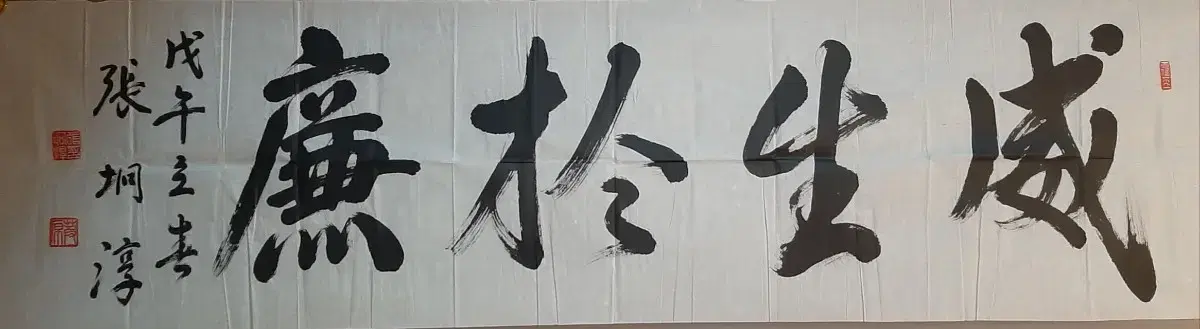 威生於廉
戊午立春
張炯淳